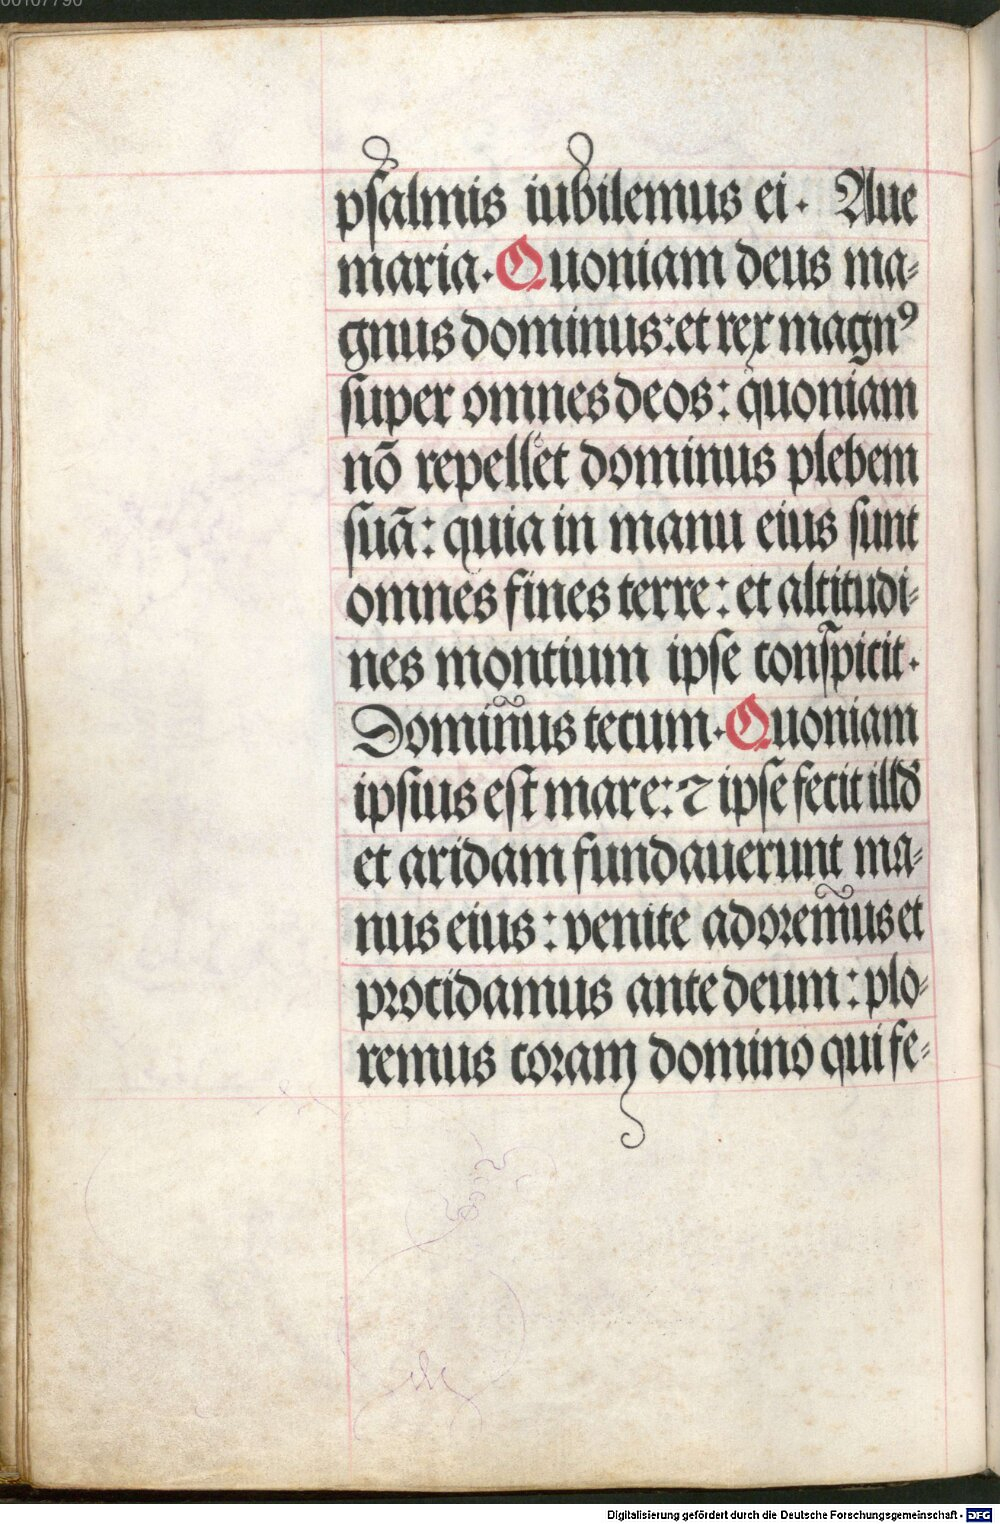 00107790
psalmis iubilemus ei. Aue
maria. Quoniam deus ma-
gnus dominus: et rex magnꝰ
super omnes deos: quoniam
nō repellet dominus plebem
suā: quia in manu eius sunt
omnes fines terre: et altitudi-
nes montium ipse conspicit.
Dominus tecum. Quoniam
ipsius est mare: ⁊ ipse fecit illđ
et aridam fundauerunt ma-
nus eius: venite adoremus et
procidamus ante deum: plo-
remus coram domino qui fe-
Digitalisierung gefördert durch die Deutsche Forschungsgemeinschaft - DFG